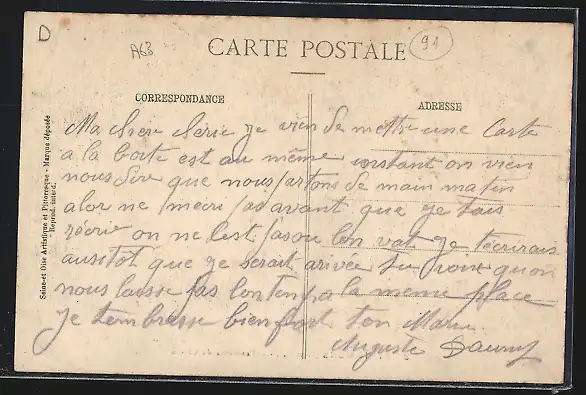 D
A63
CARTE POSTALE
91
CORRESPONDANCE
ADRESSE
Seine-et-Oise Artistique et Pittoresque - Marque déposée
- Reprod. interd.
Ma chere cherie je vien de mettre une Carte
a la boite est au même instant on vien
nous dire que nous partons de main matin
alor ne mécri pas avant que je tais
récrie on ne lest pasou lon vat je técrirais
ausitot que je serait arivée tu vois quon
nous laisse pas lontemp a la meme place
Je tembrasse bien fort ton Mari
Auguste